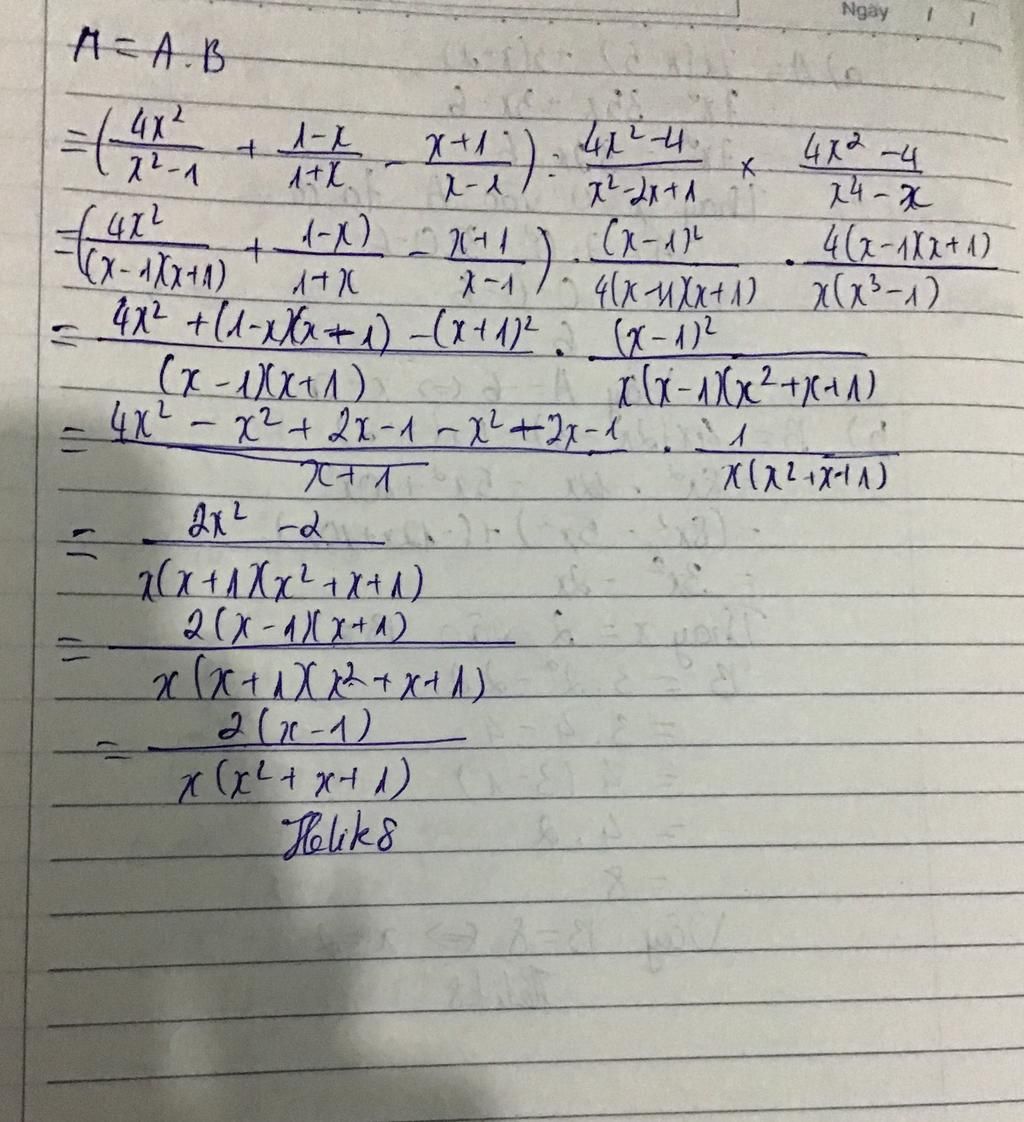 Ngày / /
A = A.B
= (4x²/(x²-1) + (1-x)/(1+x) - (x+1)/(x-1)) : (4x²-4)/(x²-2x+1) × (4x²-4)/(x⁴-x)
= (4x²/((x-1)(x+1)) + (1-x)/(1+x) - (x+1)/(x-1)) . (x-1)²/(4(x-1)(x+1)) . 4(x-1)(x+1)/(x(x³-1))
= (4x² + (1-x)(x+1) - (x+1)²)/((x-1)(x+1)) . (x-1)²/(x(x-1)(x²+x+1))
= (4x² - x² + 2x - 1 - x² + 2x - 1)/(x+1) . 1/(x(x²+x+1))
= (2x² - 2)/(x(x+1)(x²+x+1))
= 2(x-1)(x+1)/(x(x+1)(x²+x+1))
= 2(x-1)/(x(x²+x+1))
Helik8